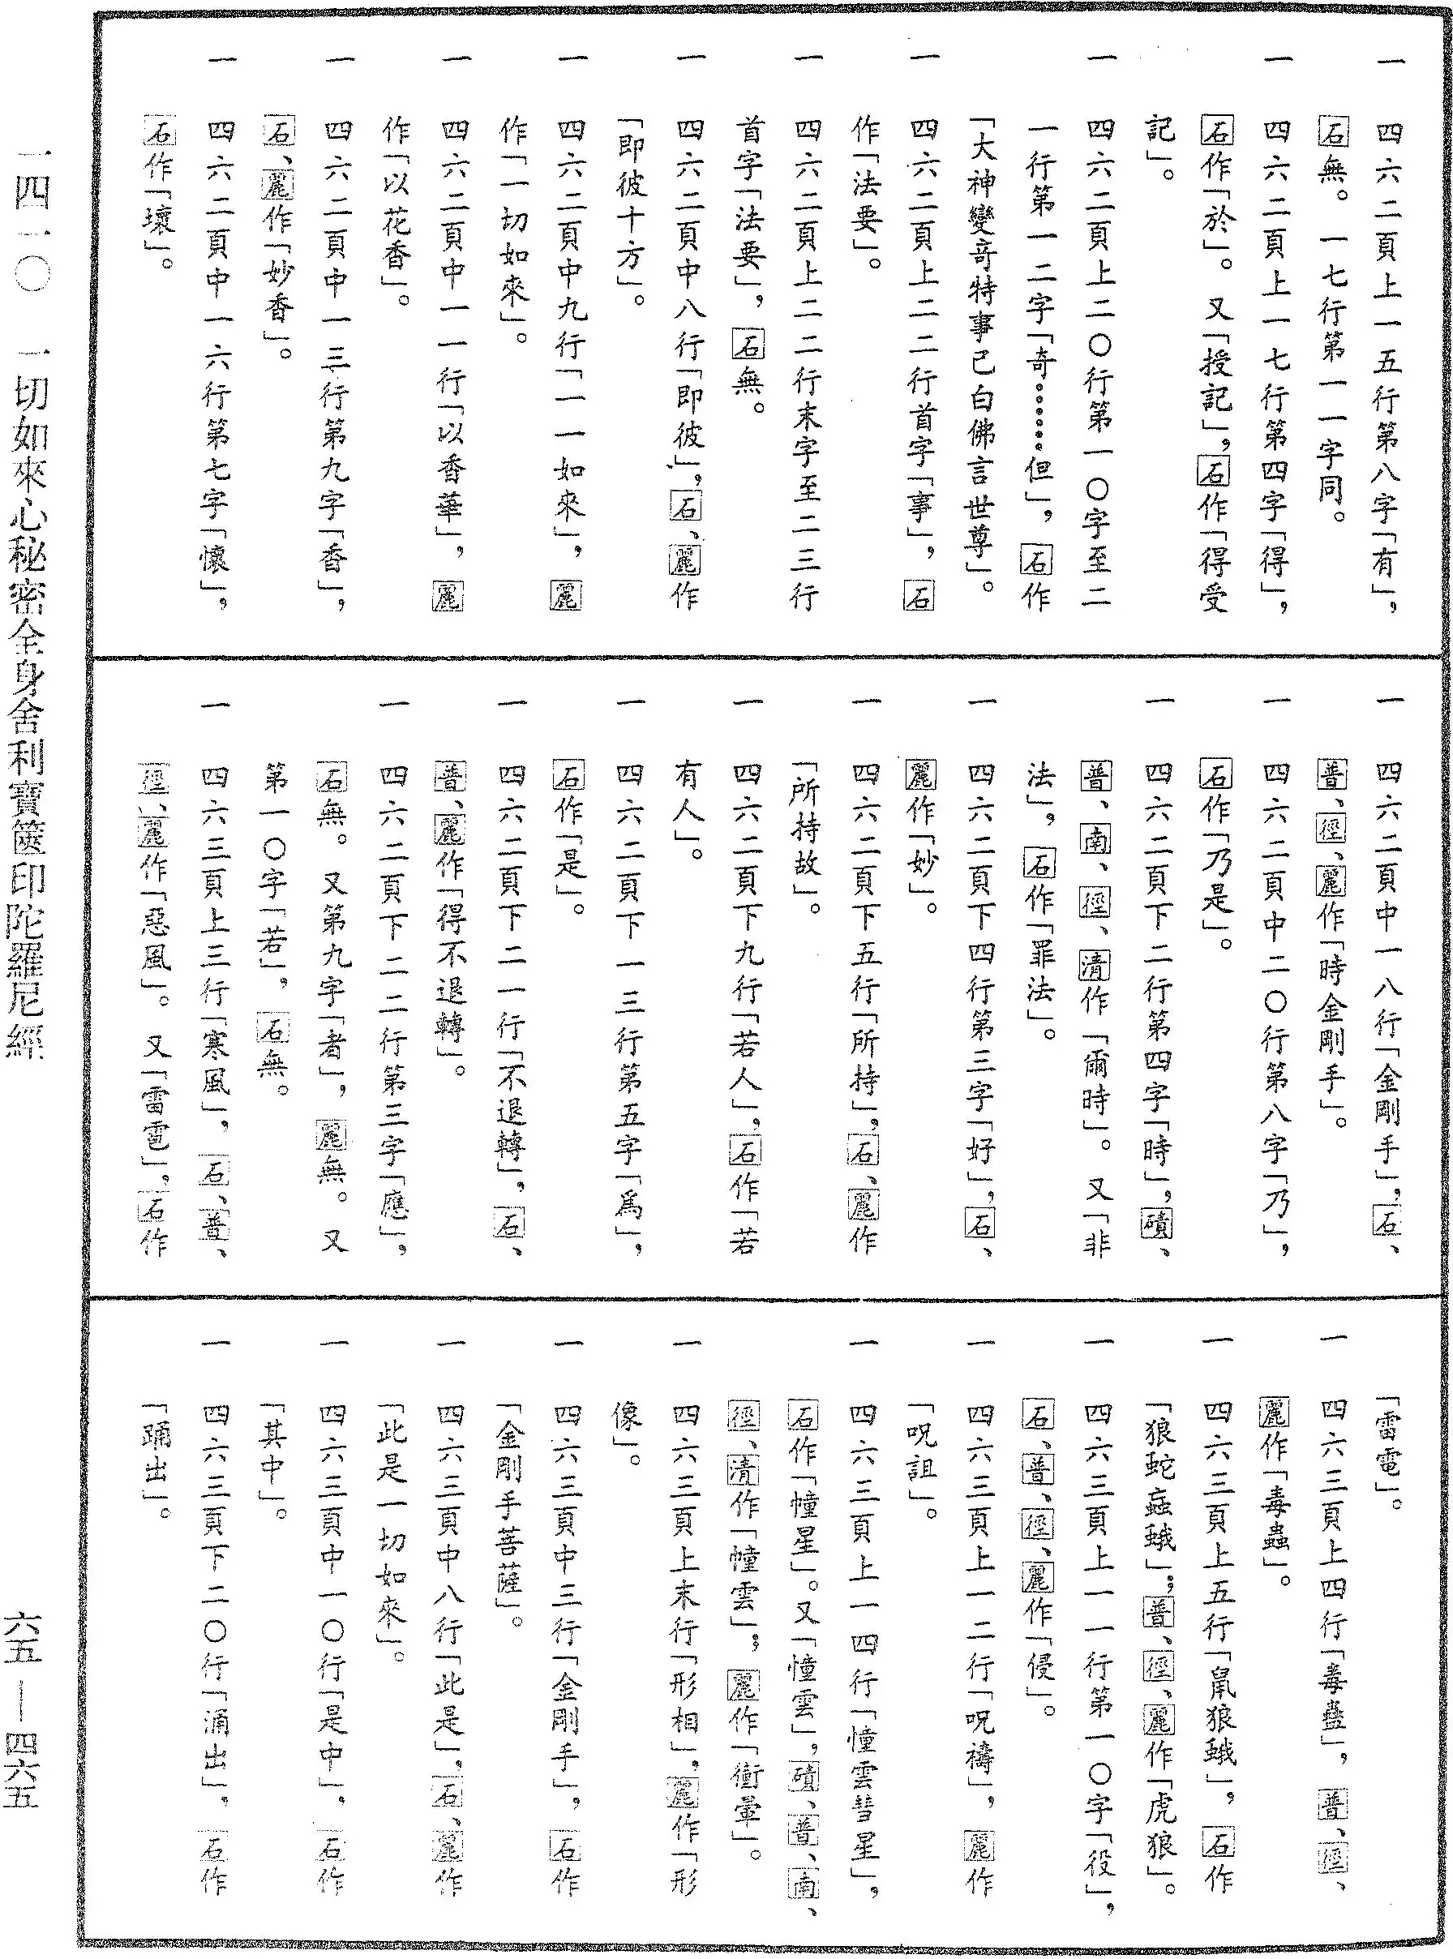 一　四六二頁上一五行第八字「有」，
石無。一七行第一一字同。
一　四六二頁上一七行第四字「得」，
石作「於」。又「授記」，石作「得受
記」。
一　四六二頁上二〇行第一〇字至二
一行第一二字「奇……但」，石作
「大神變奇特事已白佛言世尊」。
一　四六二頁上二二行首字「事」，石
作「法要」。
一　四六二頁上二二行末字至二三行
首字「法要」，石無。
一　四六二頁中八行「即彼」，石、麗作
「即彼十方」。
一　四六二頁中九行「一一如來」，麗
作「一切如來」。
一　四六二頁中一一行「以香華」，麗
作「以花香」。
一　四六二頁中一三行第九字「香」，
石、麗作「妙香」。
一　四六二頁中一六行第七字「懷」，
石作「壞」。
一　四六二頁中一八行「金剛手」，石、
普、徑、麗作「時金剛手」。
一　四六二頁中二〇行第八字「乃」，
石作「乃是」。
一　四六二頁下二行第四字「時」，磧、
普、南、徑、清作「爾時」。又「非
法」，石作「罪法」。
一　四六二頁下四行第三字「好」，石、
麗作「妙」。
一　四六二頁下五行「所持」，石、麗作
「所持故」。
一　四六二頁下九行「若人」，石作「若
有人」。
一　四六二頁下一三行第五字「爲」，
石作「是」。
一　四六二頁下二一行「不退轉」，石、
普、麗作「得不退轉」。
一　四六二頁下二二行第三字「應」，
石無。又第九字「者」，麗無。又
第一〇字「若」，石無。
一　四六三頁上三行「寒風」，石、普、
徑、麗作「惡風」。又「雷雹」，石作
「雷電」。
一　四六三頁上四行「毒蠱」，普、徑、
麗作「毒蟲」。
一　四六三頁上五行「鼠狼蛾」，石作
「狼蛇蝱蛾」；普、徑、麗作「虎狼」。
一　四六三頁上一一行第一〇字「役」，
石、普、徑、麗作「侵」。
一　四六三頁上一二行「呪禱」，麗作
「呪詛」。
一　四六三頁上一四行「憧雲彗星」，
石作「幢星」。又「憧雲」，磧、普、南、
徑、清作「幢雲」；麗作「衝暈」。
一　四六三頁上末行「形相」，麗作「形
像」。
一　四六三頁中三行「金剛手」，石作
「金剛手菩薩」。
一　四六三頁中八行「此是」，石、麗作
「此是一切如來」。
一　四六三頁中一〇行「是中」，石作
「其中」。
一　四六三頁下二〇行「涌出」，石作
「踊出」。
一四一〇　一切如來心秘密全身舍利寶篋印陀羅尼經
六五—四六五